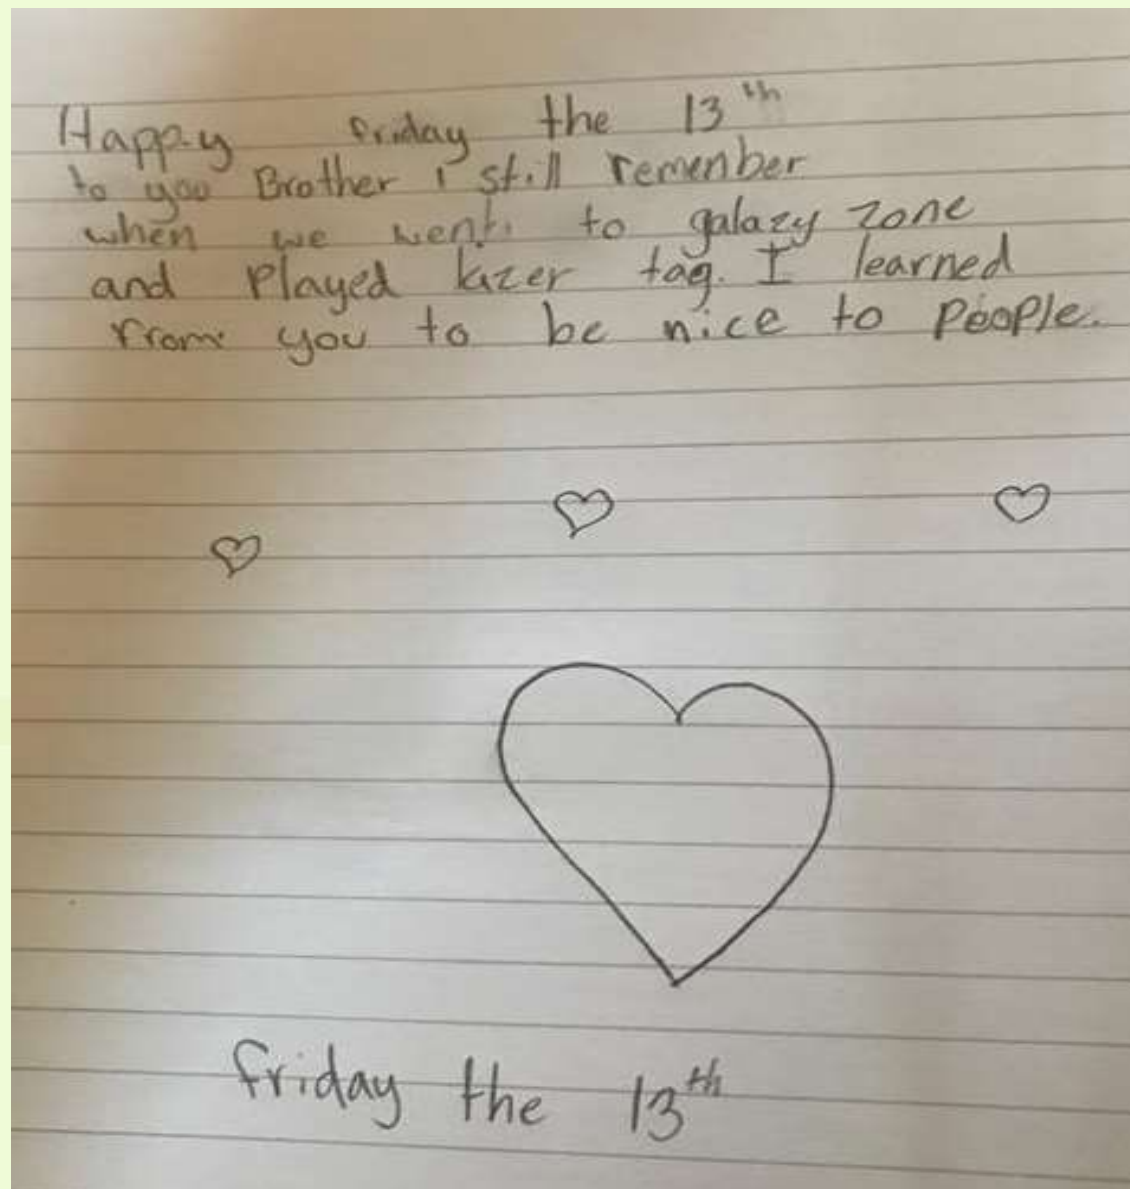 Happy friday the 13th
to you Brother i still remenber
when we went to galazy zone
and Played lazer tag. I learned
from you to be nice to people.
friday the 13th